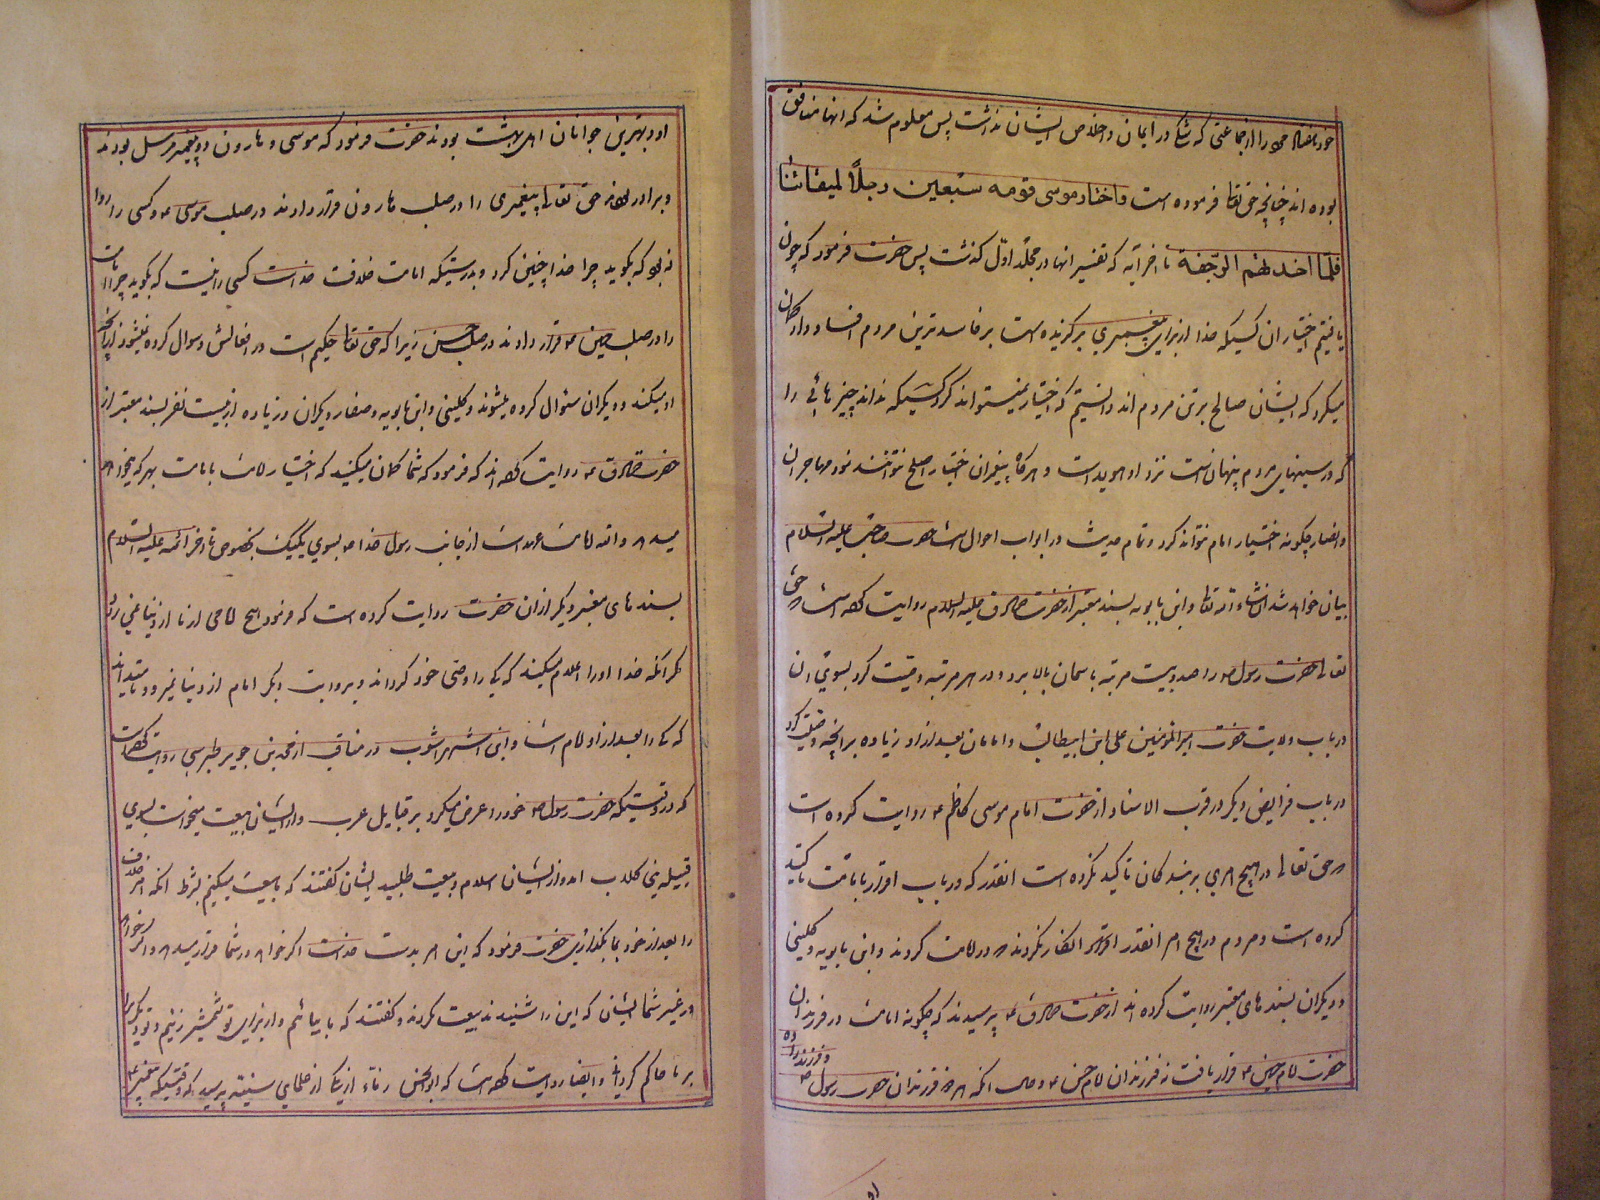 خود را از جماعتی که شکی در ایمان و اخلاص ایشان نداشت پس معلوم شد که انها منافق
بوده اند چنانچه حق تعا فرموده است واختار موسی قومه سبعین رجلاً لمیقاتنا
فلما اخذتهم الرجفة تا اخر آیه که تفسیر انها در مجلد اول گذشت پس حضرت فرمود که چون
یافتیم اختیار ان کسیکه خدا از برای پیغمبری برگزیده است بر فاسدترین مردم افتاد و او گمان
میکرد که ایشان صالح ترین مردم اند دانستیم که اختیار نمیتواند کرد کسیکه نداند چیز هائی را
که در سینهای مردم پنهانست نزد او هویداست و هرگاه پیغمبران اختیار اصلح نتوانند نمود مهاجران
وانصار چگونه اختیار امام توانند کرد و تمام حدیث در ابواب احوال حضرت صاحب علیه السلام
بیان خواهد شد انشاء الله تعا و ابن بابویه بسند معتبر از حضرت صادق علیه السلام روایت کرده است حق
تعالی حضرت رسول ص را صد و بیست مرتبه باسمان بالا برد و در هر مرتبه وصیت کرد بسوی ان
در باب ولایت حضرت امیرالمؤمنین علی ابن ابیطالب و امامان بعد از او زیاده بر انچه وصیت کرد
در باب فرایض و دیگر در قرب الاسناد از حضرت امام موسی کاظم ع روایت کرده است
حق تعالی در هیچ امری بر بندگان تاکید نکرده است انقدر که در باب اقرار بامامت تاکید
کرده است و مردم در هیچ امر انقدر انکار نکردند که در امامت کردند و ابن بابویه و کلینی
و دیگران بسند های معتبر روایت کرده اند از حضرت صادق ع پرسیدند که چگونه امامت در فرزندان
حضرت امام حسین ع قرار یافت نه فرزندان امام حسن ع و حال انکه هر دو فرزندان حضرت رسول ص
و فرزندزاده
او و بهترین جوانان اهل بهشت بودند حضرت فرمود که موسی و هارون دو پیغمبر مرسل بودند
و برادر بودند حق تعالی پیغمبری را در صلب هارون قرار دادند در صلب موسی ع و کسی را روا
نبود که بگوید چرا خدا چنین کرد و بدرستیکه امامت خلافت خداست کسی را نیست که بگوید چرا امامت
را در صلب حسین ع قرار دادند در صلب حسن زیرا که حق تعا حکیم است در افعالش و سوال کرده نمیشود از انچه
او میکند و دیگران سئوال کرده میشوند و کلینی و ابن بابویه و صفار و دیگران زیاده از بیست نفر بسند معتبر از
حضرت صادق ع روایت کرده اند که فرمود که شما گمان میکنید که اختیار امامت با ماست بهر که میخواهم
میدهم والله امامت عهدست از جانب رسول خدا ص بسوی یک یک بخصوص تا اخر ائمه علیه السلام
بسند های معتبر دیگر از ان حضرت روایت کرده است که فرمود هیچ امامی از ما از دنیا نمیرود
مگر انکه خدا او را اعلام میکند که کی را وصی خود گرداند و بروایت دیگر امام از دنیا نمیرود تا میداند
که کی را بعد از او امام است و ابن شهراشوب در مناقب از محمد بن جریر طبرسی روایت کرده است
که در وقتیکه حضرت رسول ص خود را عرض میکرد بر قبایل عرب و از ایشان بیعت میخواست بسوی
قبیله بنی کلاب امد و از ایشان اسلام و بیعت طلبید ایشان گفتند که با تو بیعت میکنیم بشرط انکه امر خلافت
را بعد از خود بما بگذاری حضرت فرمود که این امر بدست خداست اگر خواهد در شما قرار میدهد و اگر خواهد
در غیر شما ایشان که این را شنیدند بیعت نکردند و گفتند که ما بیائیم و از برای تو شمشیر زنیم و تو دیگری را
بر ما حاکم گردانی و ایضا روایت کرده است که ابوالحسن رفاء از یکی از علمای سنیه پرسید که وقتیکه پیغمبر ص